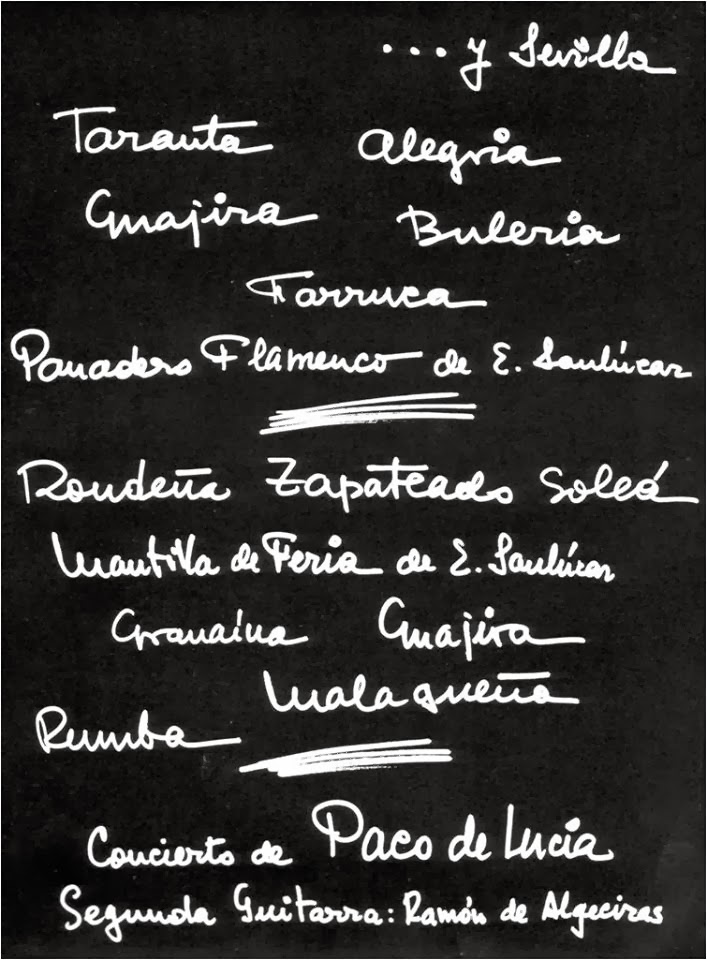 ...y Sevilla
Taranta Alegria
Guajira Buleria
Farruca
Panadero Flamenco de E. Sanlúcar
Rondeña Zapateado Soleá
Mantilla de Feria de E. Sanlúcar
Granaína Guajira
Malagueña
Rumba
Concierto de Paco de Lucía
Segunda Guitarra: Ramón de Algeciras